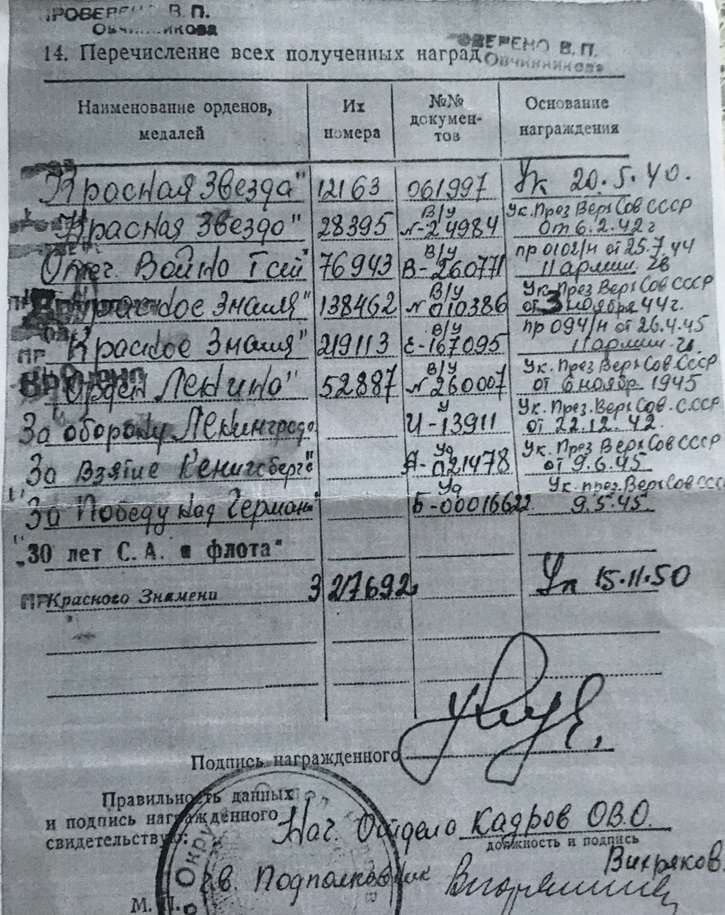 ПРОВЕРЕНО В. П.
Овчинникова
14. Перечисление всех полученных наград
ОВЕРЕНО В. П.
Овчинникова
Наименование орденов, медалей Их номера №№ докумен-тов Основание награждения
"Красная Звезда" 12163 061997 Ук 20.5.40.
"Красная Звезда" 28395 В/у №-24984 Ук. През ВерхСовСССР от 6.2.42г
Отеч. Война I ст 76943 В/у В-260771 пр 0102/н от 25.7 44 11 армии
Красное Знамя" 138462 В/у № 010386 Ук. През ВерхСов СССР от 3 ноября 44г.
Красное Знамя" 219113 В/у Е-167095 пр 094/н от 26.4.45 11 армии
"Орден Ленина" 52887 В/у № 260007 Ук. През. ВерхСовСССР от 6 ноябр. 1945
За оборону Ленинграда У И-13911 Ук. През. ВерхСов. СССР от 22.12.42.
"За Взятие Кенигсберга" Уд А-021478 Ук. През ВерхСовСССР от 9.6.45
"За Победу над Герман" Уд Б-0001662 Ук. През. ВерхСовСССР 9.5.45.
„30 лет С. А. и флота"
ПР Красного Знамени 3 217692 Ук 15.11.50
Подпись награжденного
Правильность данных
и подпись награжденного
свидетельствую:
Нач. Отдела Кадров ОВО.
должность и подпись
Гв. Подполковник
Вихряков.
М. П.